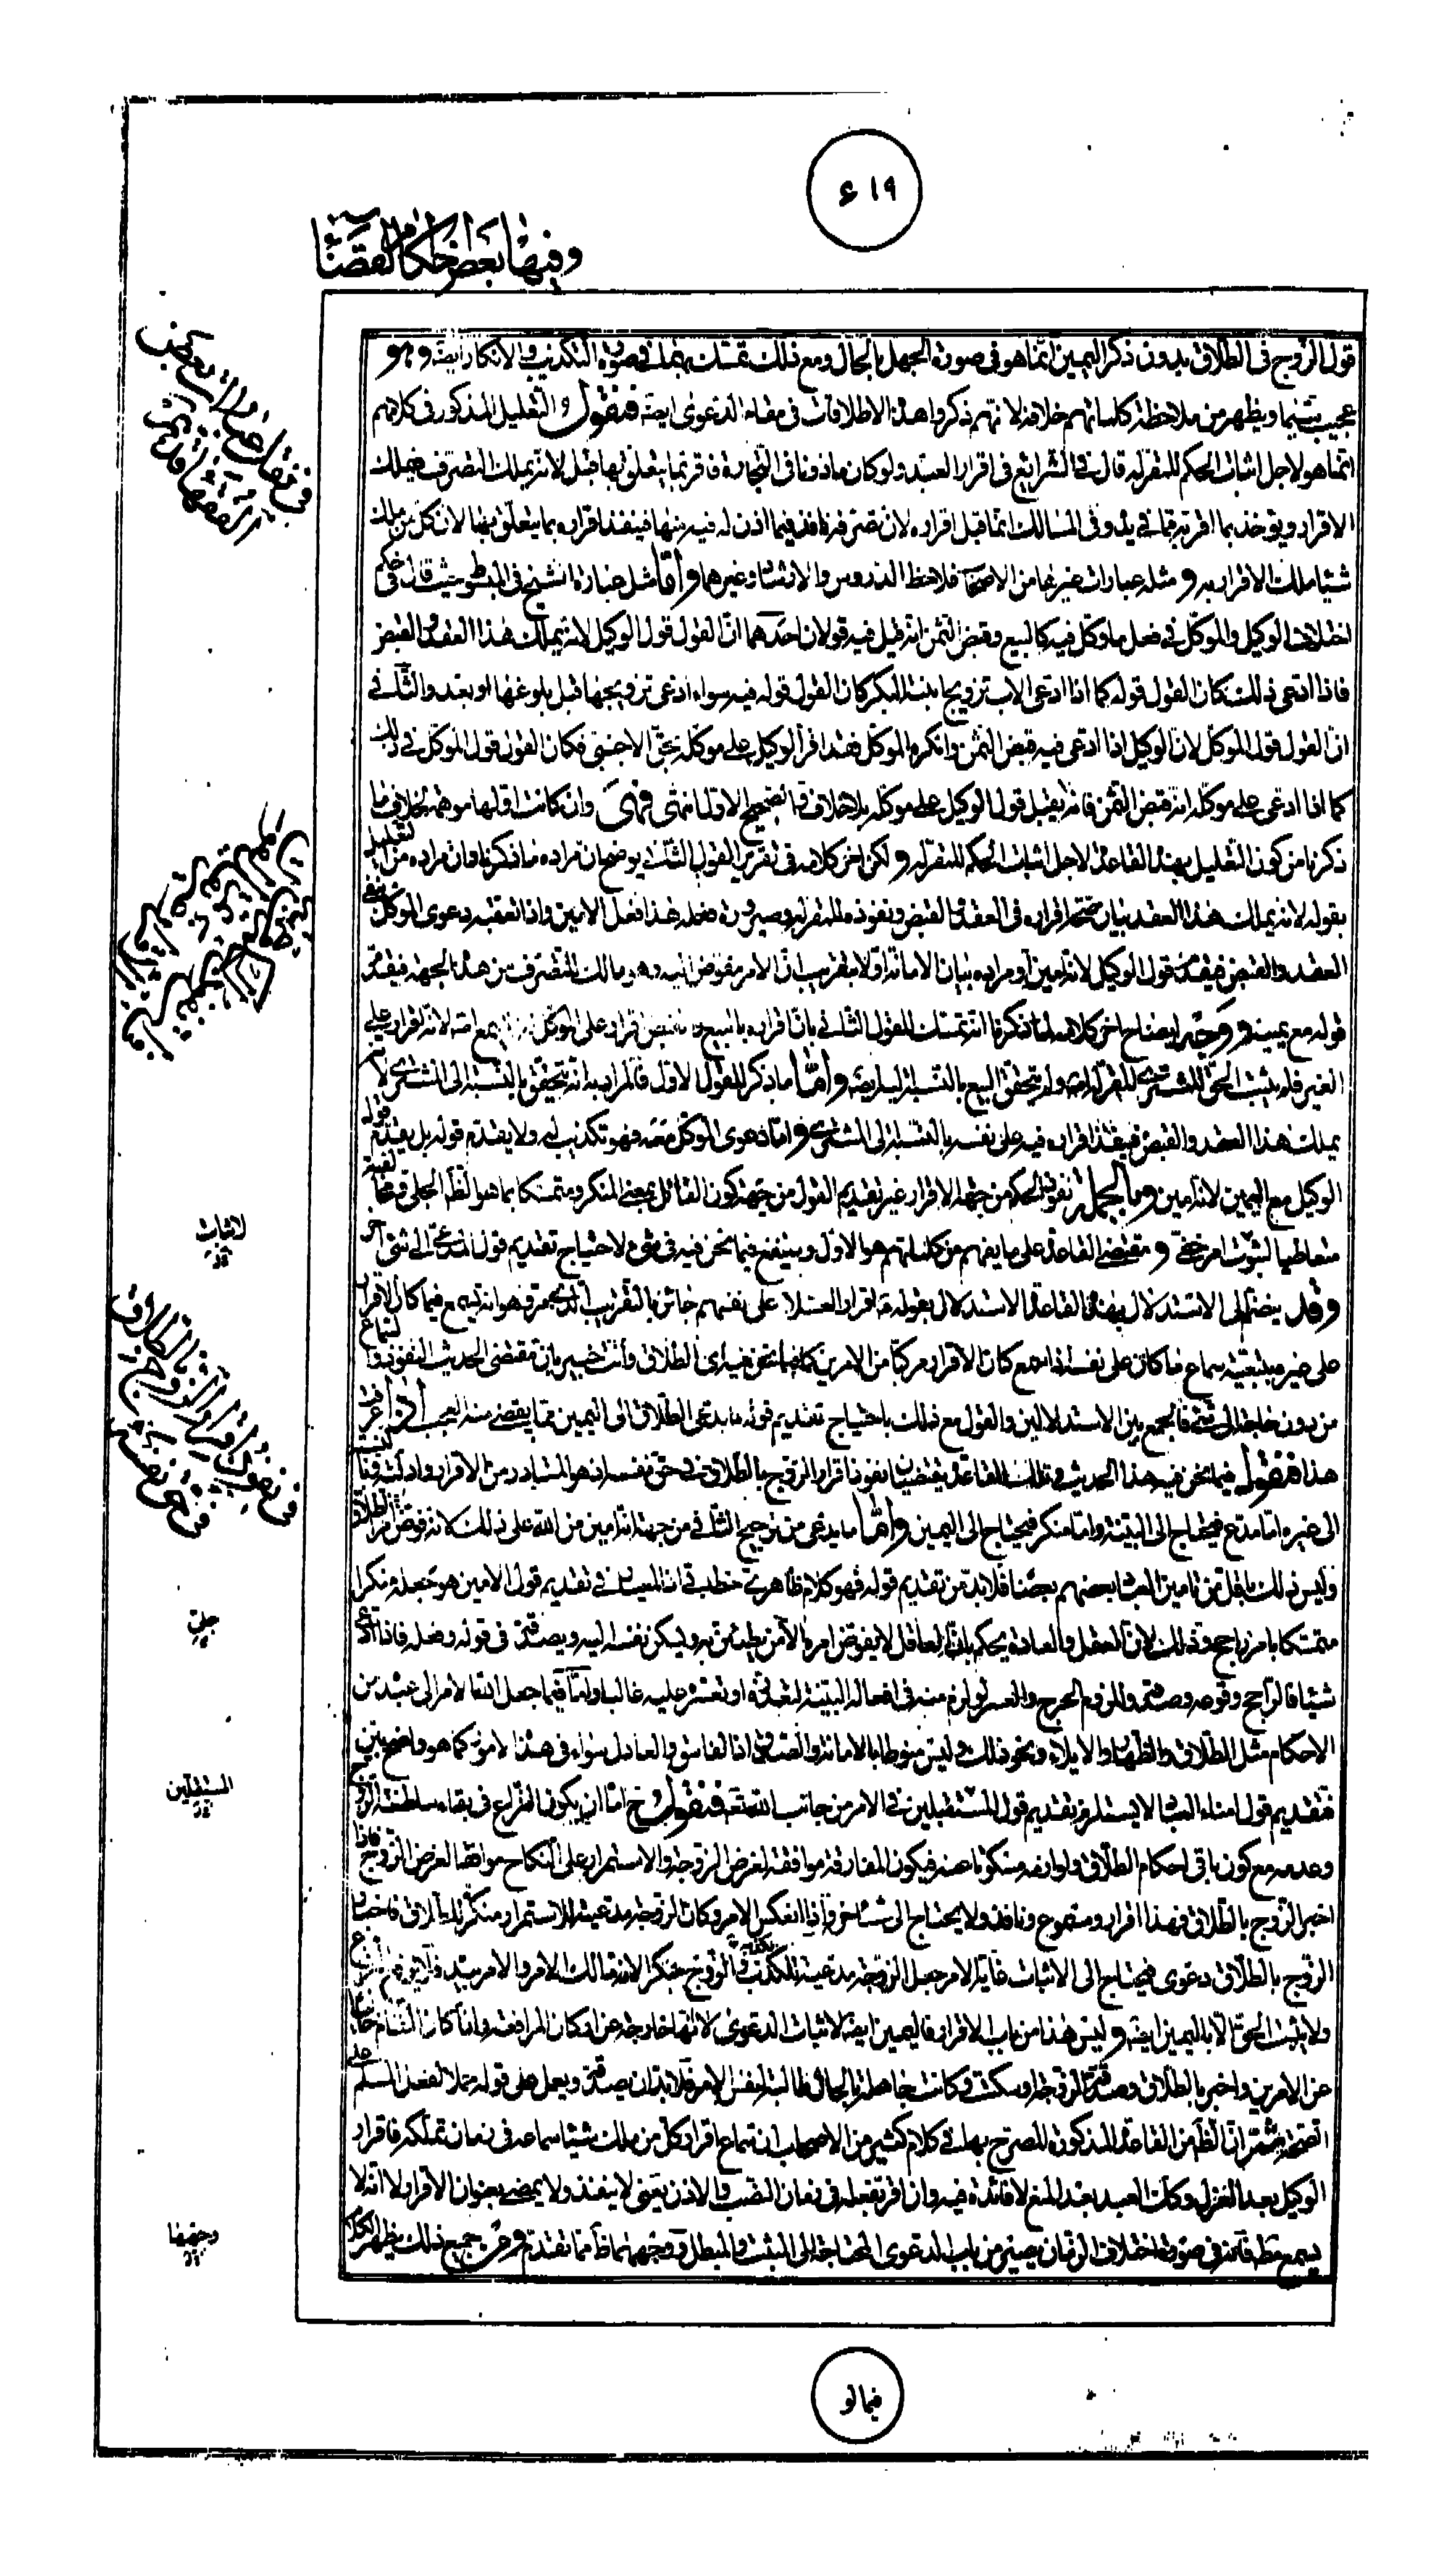 ۶۱۹
وفيها بعض احكام القضاء
قول الزوج فى الطلاق بدون ذكر اليمين انما هو فى صورة الجهل بالحال ومع ذلك تمسك بهما فى صورة التكذيب والانكار ايضا وهو
عجيب بينهما ويظهر من ملاحظة كلماتهم خلافه لانهم ذكروا هذه الاطلاقات فى مقام الدعوى ايضا فنقول والتعليل المذكور فى كلامهم
انما هو لاجل اثبات الحكم للمقر له قال فى الشرايع فى اقرار العبد ولو كان ماذونا فى التجارة فاقر بما يتعلق بها قبل لانه يملك التصرف فيملك
الاقرار ويؤخذ بما اقر به مما فى يده وفى المسالك انما قبل اقراره لان تصرفه نافذ فيما اذن له فيه منها فينفذ اقراره بما يتعلق بها لان كل من ملك
شيئا ملك الاقرار به و مثله عبارات غيرهما من الاصحاب فلاحظ الدروس والارشاد وغيرهما واما مثل عبارة الشيخ فى المبسوط حيث قال فى حكم
اختلاف الوكيل والموكل فى فعل ما وكل فيه كالبيع وقبض الثمن انه قيل فيه قولان احدهما ان القول قول الوكيل لانه يملك هذا العقد والقبض
فاذا ادعى ذلك كان القول قوله كما اذا ادعى الاب تزويج ابنته البكر كان القول قوله فيه سواء ادعى تزويجها قبل بلوغها او بعده والثانى
ان القول قول الموكل لان الوكيل اذا ادعى فيه قبض الثمن وانكره الموكل فقد اقر الوكيل على موكله بحق الاجنبى فكان القول قول الموكل فى ذلك
كما اذا ادعى على موكله انه قبض الثمن فانه يقبل قول الوكيل على موكله بلا خلاف والصحيح الاول انتهى فهى وان كانت اولها موهمة لخلاف ما
ذكرنا من كون التعليل بهذه القاعدة لاجل اثبات الحكم للمقر له و لكن اخر كلامه فى تقرير القول الثانى يوضح ان مراده ما ذكرنا وان مراده من التعليل
بقوله لانه يملك هذا العقد بيان صحة اقراره فى العقد والقبض ونفوذه للمقر له وصيرورة فعله هذا فعل الامين واذا تعقبه دعوى الموكل نفى
العقد والقبض فيقدم قول الوكيل لانه امين او مراده بيان الامانة اولا بتقريب ان الامر مفوض اليه وهو مالك التصرف من هذه الجهة فيقدم
قوله مع يمينه و وجه ايضاح اخر كلامه لما ذكرنا انه تمسك للقول الثانى بان اقراره بالبيع والقبض اقرار على الموكل لانه اقرار على
الغير فلم يثبت الحق للمشترى المقر له ولم يتحقق البيع بالنسبة اليه ايضا واما ما ذكر للقول الاول فالمراد به انه يتحقق بالنسبة الى المشترى لانه
يملك هذا العقد والقبض فينفذ اقراره فيه على نفسه بالنسبة الى المشترى و اما دعوى الموكل معه فهو تكذيب له ولا يقدم قوله بل يقدم قول
الوكيل مع اليمين لانه امين وبالجملة نفوذ الحكم من جهة الاقرار غير تقديم القول من جهة كون القائل بمعنى المنكر ومتمسكا بما هو الظاهر الجلى
متعاطيا لثبوت امر خفى و مقتضى القاعدة على ما يفهم من كلماتهم هو الاول وينتفع فيما نحن فيه فى عدم الاحتياج تقديم قول المدعى الى شئ اخر
وقد ينضم الى الاستدلال بهذه القاعدة الاستدلال بقوله اقرار العقلاء على انفسهم جائز بالتقريب الذى مر فهو انه يسمع فيما كان الاقرار
على غيره بتبعية سماع ما كان على نفسه اذا مع كان الاقرار مركبا من الامرين كما فيما نحن فيه اى الطلاق وانت خبير بان مقتضى الحديث النفوذ والسماع
من دون حاجة الى شئ فالجمع بين الاستدلالين والقول مع ذلك باحتياج تقديم قوله ما يدعى الطلاق الى اليمين مما يقضى منه العجب اذا عرفت
هذا فنقول فيما نحن فيه هذا الحديث وتلك القاعدة يقتضيان نفوذ اقرار الزوج بالطلاق فى حق نفسه اذ هو المتبادر من الاقرار واما بالنسبة
الى غيره اما مدع فيحتاج الى البينة واما منكر فيحتاج الى اليمين واما ما يدعى من ترجيح الثانى من جهة انه امين من الله على ذلك كانه فوض امر الطلاق
وليس ذلك باقل من تامين العباد بعضهم بعضا فلابد من تقديم قوله فهو كلام ظاهرى خطابى اذ المعيار فى تقديم قول الامين هو جعله منكرا
متمسكا بامر راجح وذلك لان العقل والعادة يحكم بان العاقل لا يفوض امره الا من يطمئن به ويسكن نفسه اليه ويصدقه فى قوله وفعله فاذا ادعى
شيئا فالراجح وقوعه وصدقه وللزوم الحرج والعسر لو لزم منه فى افعاله البينة لتعذره او تعسره عليه غالبا واما فيما جعل الله الامر الى عبيده من
الاحكام مثل الطلاق والظهار والايلاء ونحو ذلك وليس منوطا بالامانة والصدق اذ الفاسق والعادل سواء فى هذه الامور كما هو واضح بين
فتقديم قول امناء العباد لا يستلزم تقديم قول المستقبلين فى الامر من جانب الله تعالى فنقول ح اما ان يكون النزاع فى بقاء سلطنة الزوج
وعدمه مع كون باقى احكام الطلاق ولوازمه مسكوتا عنه فيكون المفارقة موافقة لغرض الزوجة والاستمرار على النكاح موافقا لغرض الزوج فاذا
اخبر الزوج بالطلاق فهذا اقرار ومسموع ونافذ ولا يحتاج الى شئ اخر واذا انعكس الامر وكان الزوجة مدعية للاستمرار منكرة للطلاق فاخبار
الزوج بالطلاق دعوى فيحتاج الى الاثبات غاية الامر جعل الزوجة مدعية لكذب الزوج والزوج منكرا لانه مالك الامر والامر بيده
ولا يثبت الحق الا باليمين ايضا و ليس هذا من باب الاقرار فاليمين ايضا لاثبات الدعوى لانها خارجة عن اركان المرافعة واما كان المقام خاليا
عن الامرين واخبر بالطلاق وصدقته الزوجة او سكتت وكانت جاهلة بالحال طالبة لنفس الامر فلابد ان يصدق ويعمل على قوله حملا لفعل المسلم على
الصحة ثم ان الظاهر من القاعدة المذكورة المصرح بها فى كلام كثير من الاصحاب ان سماع اقرار كل من ملك شيئا سماعه فى زمان تملكه فاقرار
الوكيل بعد العزل وكذا العبد بعد المنع لا فائدة فيه وان اقر بفعله فى زمان النصب والاذن يعنى لا ينفذ ولا يمضى بعنوان الاقرار لا انه لا
يسمع مطلقا فانه فى صورة اختلاف الزمان يصير من باب الدعوى المحتاجة الى المثبت والمبطل ووجههما ظاهر مما تقدم ومن جميع ذلك يظهر الكلام
لاثبات
فى نفوذ اقرار الزوج بالطلاق
فى حق نفسه
جلى
المستقبلين
فيما لو